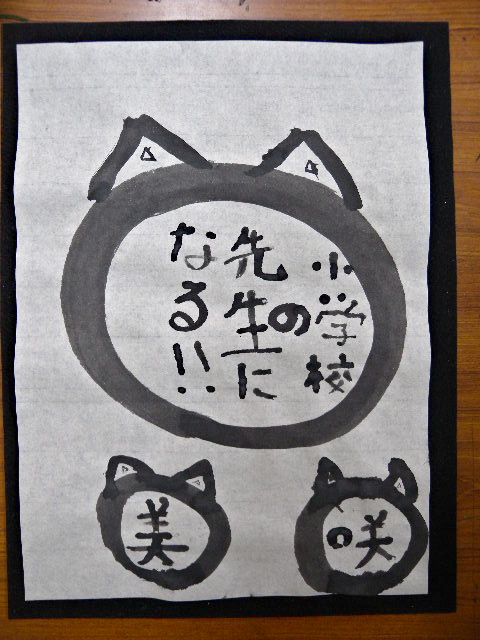 小学校
の
先生に
なる!!
咲
美